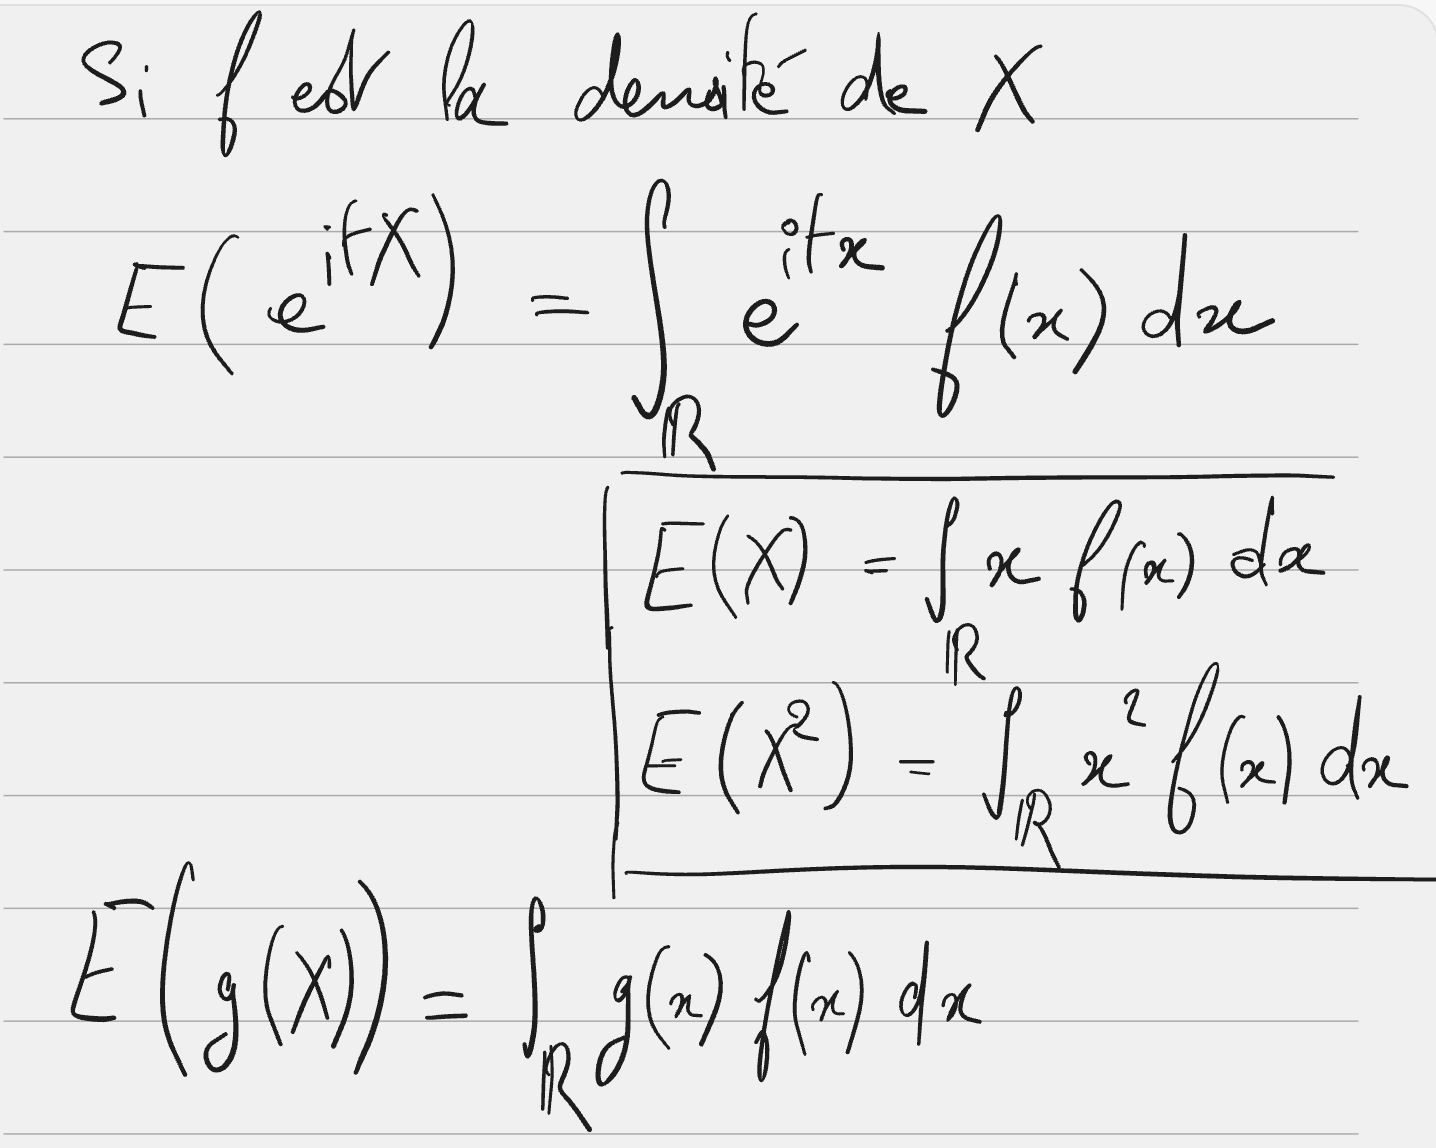 Si f est la densité de X
E(e^{itX}) = ∫_ℝ e^{itx} f(x) dx
E(X) = ∫_ℝ x f(x) dx
E(X²) = ∫_ℝ x² f(x) dx
E(g(X)) = ∫_ℝ g(x) f(x) dx